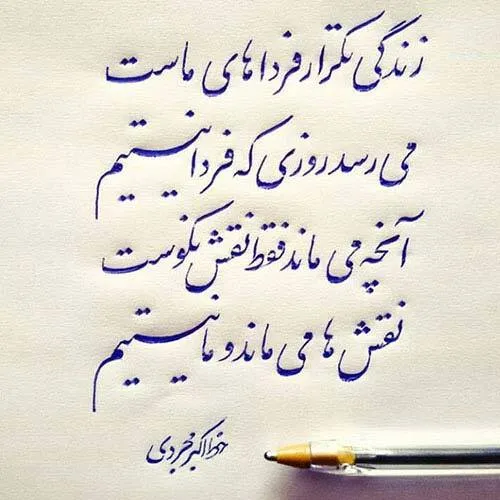 زندگی تکرار فرداهای ماست
می رسد روزی که فردا نیستیم
آنچه می ماند فقط نقش نکوست
نقش ها می ماند و ما نیستیم
خط اکبر خبردی